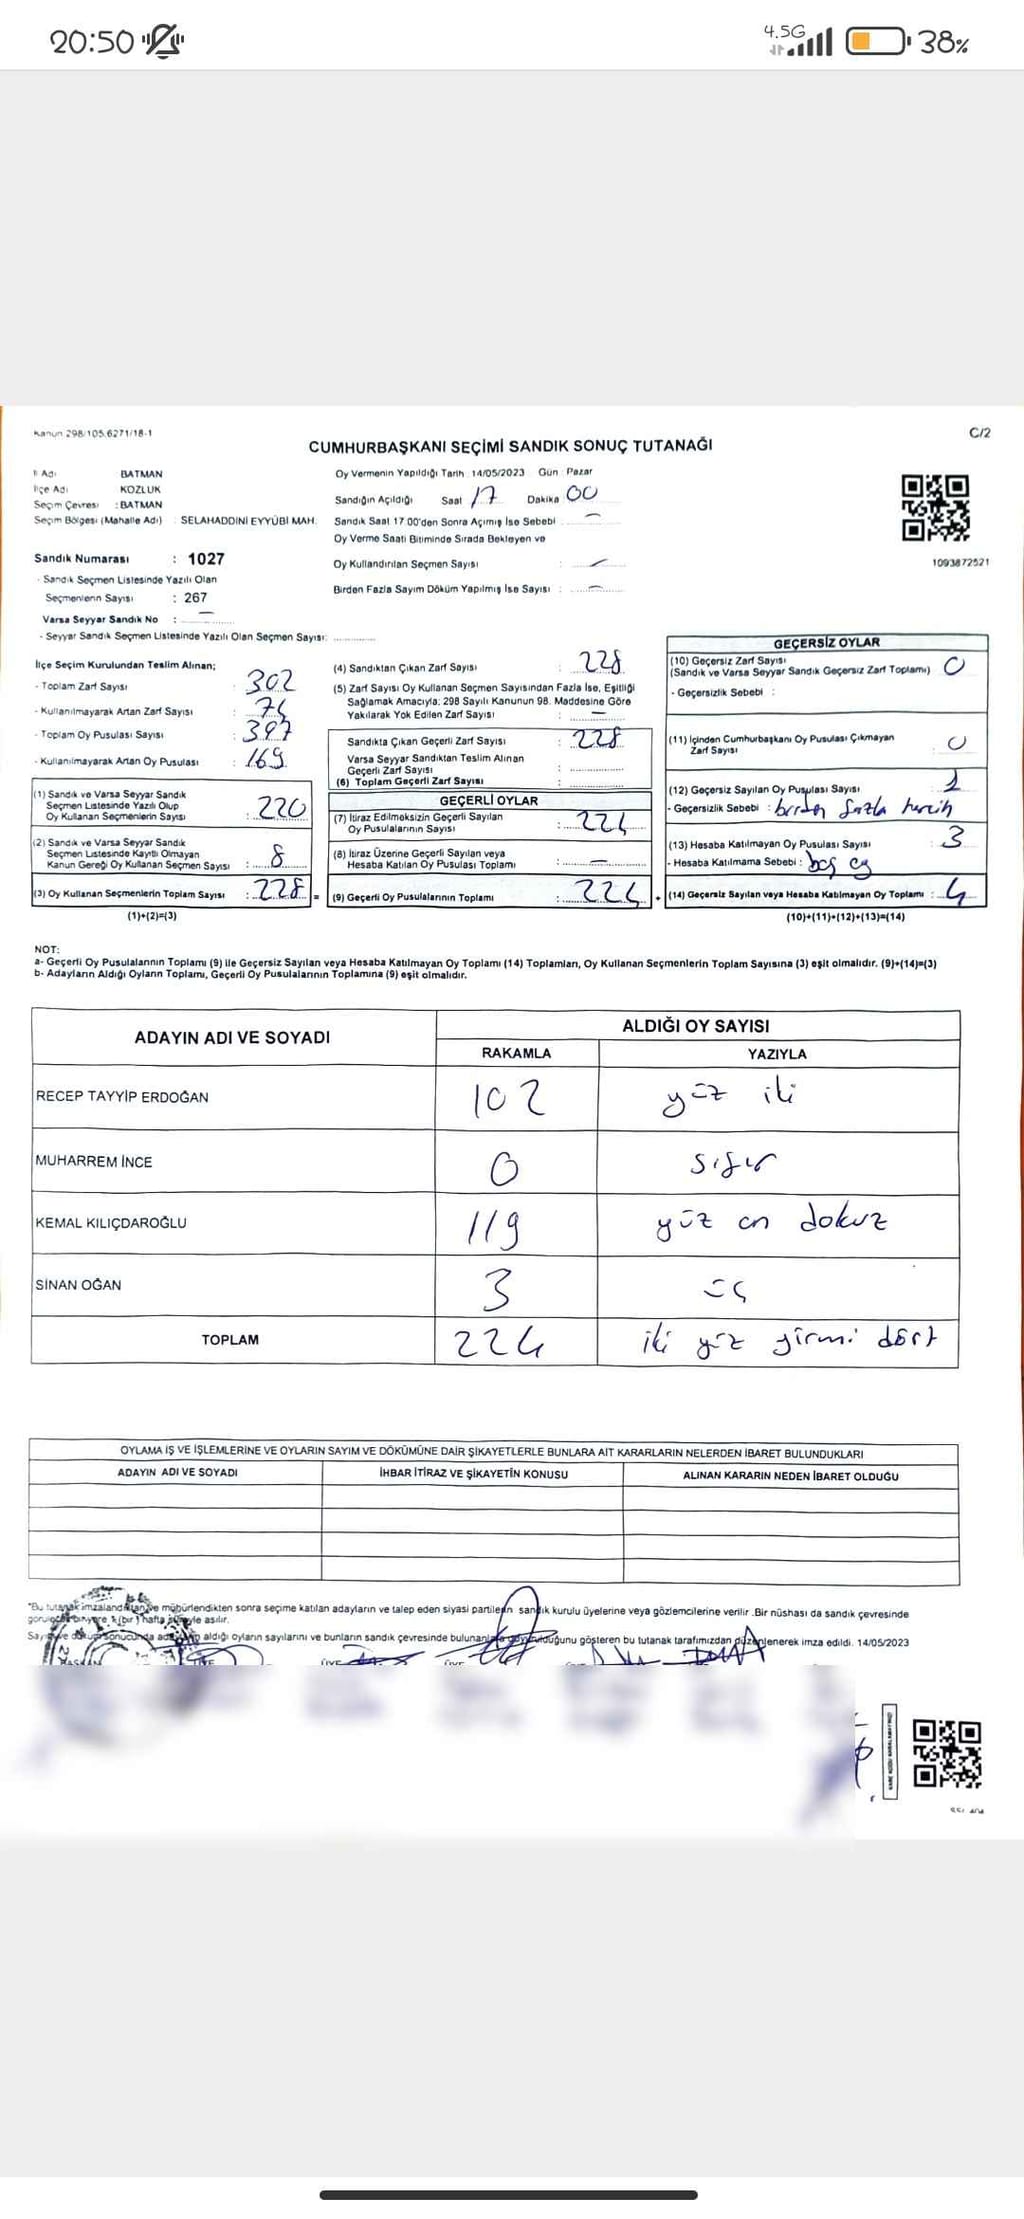 20:50
4.5G
38%
Kanun 298/105.6271/18-1
C/2
CUMHURBAŞKANI SEÇİMİ SANDIK SONUÇ TUTANAĞI
İl Adı BATMAN
İlçe Adı KOZLUK
Seçim Çevresi : BATMAN
Seçim Bölgesi (Mahalle Adı) : SELAHADDİNİ EYYÜBİ MAH.
Sandık Numarası : 1027
- Sandık Seçmen Listesinde Yazılı Olan
Seçmenlerin Sayısı : 267
Varsa Seyyar Sandık No : —
- Seyyar Sandık Seçmen Listesinde Yazılı Olan Seçmen Sayısı:
Oy Vermenin Yapıldığı Tarih : 14/05/2023 Gün : Pazar
Sandığın Açıldığı Saat 17 Dakika 00
Sandık Saat 17 00'den Sonra Açımış İse Sebebi —
Oy Verme Saati Bitiminde Sırada Bekleyen ve
Oy Kullandırılan Seçmen Sayısı : —
Birden Fazla Sayım Döküm Yapılmış İse Sayısı : —
1093872521
İlçe Seçim Kurulundan Teslim Alınan;
- Toplam Zarf Sayısı : 302
- Kullanılmayarak Artan Zarf Sayısı : 74
- Toplam Oy Pusulası Sayısı : 397
- Kullanılmayarak Artan Oy Pusulası : 169
(1) Sandık ve Varsa Seyyar Sandık
Seçmen Listesinde Yazılı Olup
Oy Kullanan Seçmenlerin Sayısı : 220
(2) Sandık ve Varsa Seyyar Sandık
Seçmen Listesinde Kayıtlı Olmayan
Kanun Gereği Oy Kullanan Seçmen Sayısı : 8
(3) Oy Kullanan Seçmenlerin Toplam Sayısı : 228 =
(1)+(2)=(3)
(4) Sandıktan Çıkan Zarf Sayısı : 228
(5) Zarf Sayısı Oy Kullanan Seçmen Sayısından Fazla İse, Eşitliği
Sağlamak Amacıyla; 298 Sayılı Kanunun 98. Maddesine Göre
Yakılarak Yok Edilen Zarf Sayısı : —
Sandıkta Çıkan Geçerli Zarf Sayısı : 228
Varsa Seyyar Sandıktan Teslim Alınan
Geçerli Zarf Sayısı :
(6) Toplam Geçerli Zarf Sayısı :
GEÇERLİ OYLAR
(7) İtiraz Edilmeksizin Geçerli Sayılan
Oy Pusulalarının Sayısı : 224
(8) İtiraz Üzerine Geçerli Sayılan veya
Hesaba Katılan Oy Pusulası Toplamı : —
(9) Geçerli Oy Pusulalarının Toplamı : 224 +
GEÇERSİZ OYLAR
(10) Geçersiz Zarf Sayısı
(Sandık ve Varsa Seyyar Sandık Geçersiz Zarf Toplamı) 0
- Geçersizlik Sebebi :
(11) İçinden Cumhurbaşkanı Oy Pusulası Çıkmayan
Zarf Sayısı 0
(12) Geçersiz Sayılan Oy Pusulası Sayısı : 1
- Geçersizlik Sebebi : birden fazla tercih
(13) Hesaba Katılmayan Oy Pusulası Sayısı : 3
- Hesaba Katılmama Sebebi : boş oy
(14) Geçersiz Sayılan veya Hesaba Katılmayan Oy Toplamı : 4
(10)+(11)+(12)+(13)=(14)
NOT:
a- Geçerli Oy Pusulalarının Toplamı (9) ile Geçersiz Sayılan veya Hesaba Katılmayan Oy Toplamı (14) Toplamları, Oy Kullanan Seçmenlerin Toplam Sayısına (3) eşit olmalıdır. (9)+(14)=(3)
b- Adayların Aldığı Oyların Toplamı, Geçerli Oy Pusulalarının Toplamına (9) eşit olmalıdır.
ADAYIN ADI VE SOYADI
ALDIĞI OY SAYISI
RAKAMLA YAZIYLA
RECEP TAYYİP ERDOĞAN 102 yüz iki
MUHARREM İNCE 0 sıfır
KEMAL KILIÇDAROĞLU 119 yüz on dokuz
SİNAN OĞAN 3 üç
TOPLAM 224 iki yüz yirmi dört
OYLAMA İŞ VE İŞLEMLERİNE VE OYLARIN SAYIM VE DÖKÜMÜNE DAİR ŞİKAYETLERLE BUNLARA AİT KARARLARIN NELERDEN İBARET BULUNDUKLARI
ADAYIN ADI VE SOYADI İHBAR İTİRAZ VE ŞİKAYETİN KONUSU ALINAN KARARIN NEDEN İBARET OLDUĞU
"Bu tutanak imzalandıktan ve mühürlendikten sonra seçime katılan adayların ve talep eden siyasi partilerin sandık kurulu üyelerine veya gözlemcilerine verilir .Bir nüshası da sandık çevresinde
görülecek bir yere 1 (bir ) hafta süreyle asılır.
Sayım ve döküm sonucunda adayların aldığı oyların sayılarını ve bunların sandık çevresinde bulunanlara duyurulduğunu gösteren bu tutanak tarafımızdan düzenlenerek imza edildi. 14/05/2023
BAŞKAN ÜYE ÜYE